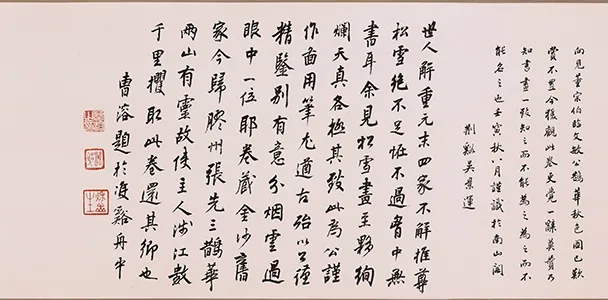 向見董宗伯跋文敏公鵲華秋色圖已歎
賞不置今復觀此卷更覺一辭莫贊乃
知書畫一致知之而不能為之為之而不
能名之也壬寅秋八月謹識於南山閣
荆谿吳景運
世人解重元末四家不解推尊
松雪絶不足怪不過胷中無
書耳余見松雪畫至夥絢
爛天真各極其致此為公謹
作面用筆尤遒古殆以公謹
精鑒別有意分烟雲過
眼中一位耶卷藏金沙舊
家今歸膠州張先三鵲華
兩山有靈故使主人涉江數
千里攫取此卷還其鄉也
曹溶題於谿舟